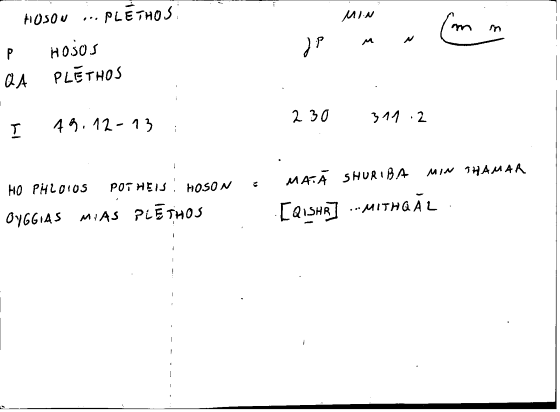 HOSON ... PLĒTHOS MIN
P HOSOS JP M N (m n
QA PLĒTHOS
I 49.12-13 230 311.2
HO PHLOIOS POTHEIS HOSON = MATĀ SHURIBA MIN THAMAR
OYGGIAS MIAS PLĒTHOS [QISHR] ... MITHQĀL